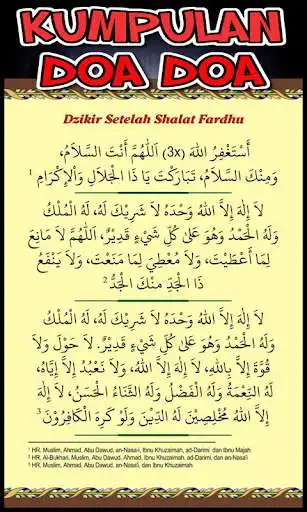 KUMPULAN
DOA DOA
Dzikir Setelah Shalat Fardhu
أَسْتَغْفِرُ اللهَ (3x) اَللَّهُمَّ أَنْتَ السَّلاَمُ،
وَمِنْكَ السَّلاَمُ، تَبَارَكْتَ يَا ذَا الْجَلاَلِ وَاْلإِكْرَامِ 1
لاَ إِلَهَ إِلاَّ اللهُ وَحْدَهُ لاَ شَرِيْكَ لَهُ، لَهُ الْمُلْكُ
وَلَهُ الْحَمْدُ وَهُوَ عَلَى كُلِّ شَيْءٍ قَدِيْرٌ، اَللَّهُمَّ لاَ مَانِعَ
لِمَا أَعْطَيْتَ، وَلاَ مُعْطِيَ لِمَا مَنَعْتَ، وَلاَ يَنْفَعُ
ذَا الْجَدِّ مِنْكَ الْجَدُّ 2
لاَ إِلَهَ إِلاَّ اللهُ وَحْدَهُ لاَ شَرِيْكَ لَهُ، لَهُ الْمُلْكُ
وَلَهُ الْحَمْدُ وَهُوَ عَلَى كُلِّ شَيْءٍ قَدِيْرٌ. لاَ حَوْلَ وَلاَ
قُوَّةَ إِلاَّ بِاللهِ، لاَ إِلَهَ إِلاَّ اللهُ، وَلاَ نَعْبُدُ إِلاَّ إِيَّاهُ،
لَهُ النِّعْمَةُ وَلَهُ الْفَضْلُ وَلَهُ الثَّنَاءُ الْحَسَنُ، لاَ إِلَهَ
إِلاَّ اللهُ مُخْلِصِيْنَ لَهُ الدِّيْنَ وَلَوْ كَرِهَ الْكَافِرُوْنَ 3
1 HR. Muslim, Ahmad, Abu Dawud, an-Nasa-i, Ibnu Khuzaimah, ad-Darimi dan Ibnu Majah
2 HR. Al-Bukhari, Muslim, Abu Dawud, Ahmad, Ibnu Khuzaimah, ad-Darimi, dan an-Nasa'i
3 HR. Muslim, Ahmad, Abu Dawud, an-Nasa'i, dan Ibnu Khuzaimah